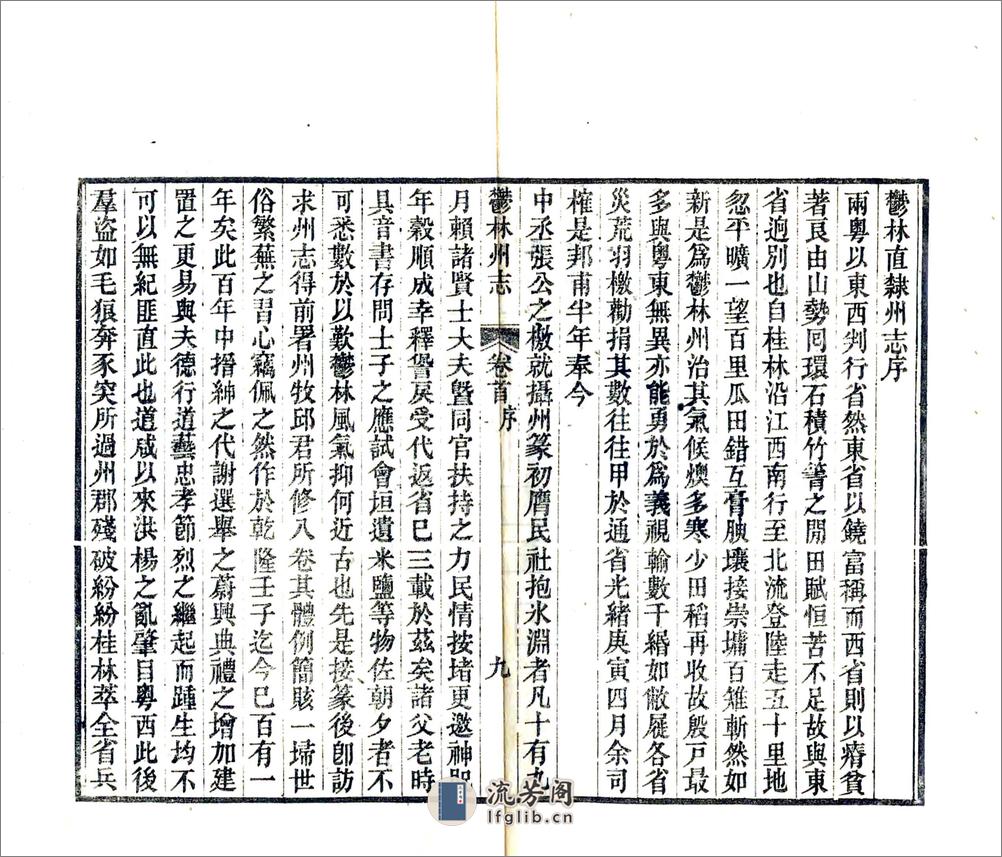 鬱林直隸州志序
兩粵以東西判行省然東省以饒富稱而西省則以瘠貧
著良由山勢囘環石積竹箐之閒田賦恒苦不足故與東
省迥別也自桂林沿江西南行至北流登陸走五十里地
忽平曠一望百里瓜田錯互膏腴壤接崇墉百雉斬然如
新是爲鬱林州治其氣候燠多寒少田稻再收故殷戸最
多與粵東無異亦能勇於爲義視輸數千緡如敝屣各省
災荒羽檄勸捐其數往往甲於通省光緒庚寅四月余司
榷是邦甫半年奉今
中丞張公之檄就攝州篆初膺民社抱氷淵者凡十有九
鬱林州志 卷首 序 九
月賴諸賢士大夫曁同官扶持之力民情按堵更邀神貺
年穀順成幸釋譽戾受代返省巳三載於茲矣諸父老時
具音書存問士子之應試會垣遺米鹽等物佐朝夕者不
可悉數於以歎鬱林風氣抑何近古也先是接篆後卽訪
求州志得前署州牧邱君所修八卷其體例簡賅一埽世
俗繁蕪之習心竊佩之然作於乾隆壬子迄今巳百有一
年矣此百年中搢紳之代謝選舉之蔚興典禮之增加建
置之更易與夫德行道藝忠孝節烈之繼起而踵生均不
可以無紀匪直此也道咸以來洪楊之亂肇自粵西此後
羣盜如毛狼奔豕突所過州郡殘破紛紛桂林萃全省兵
流芳阁
lfglib.cn